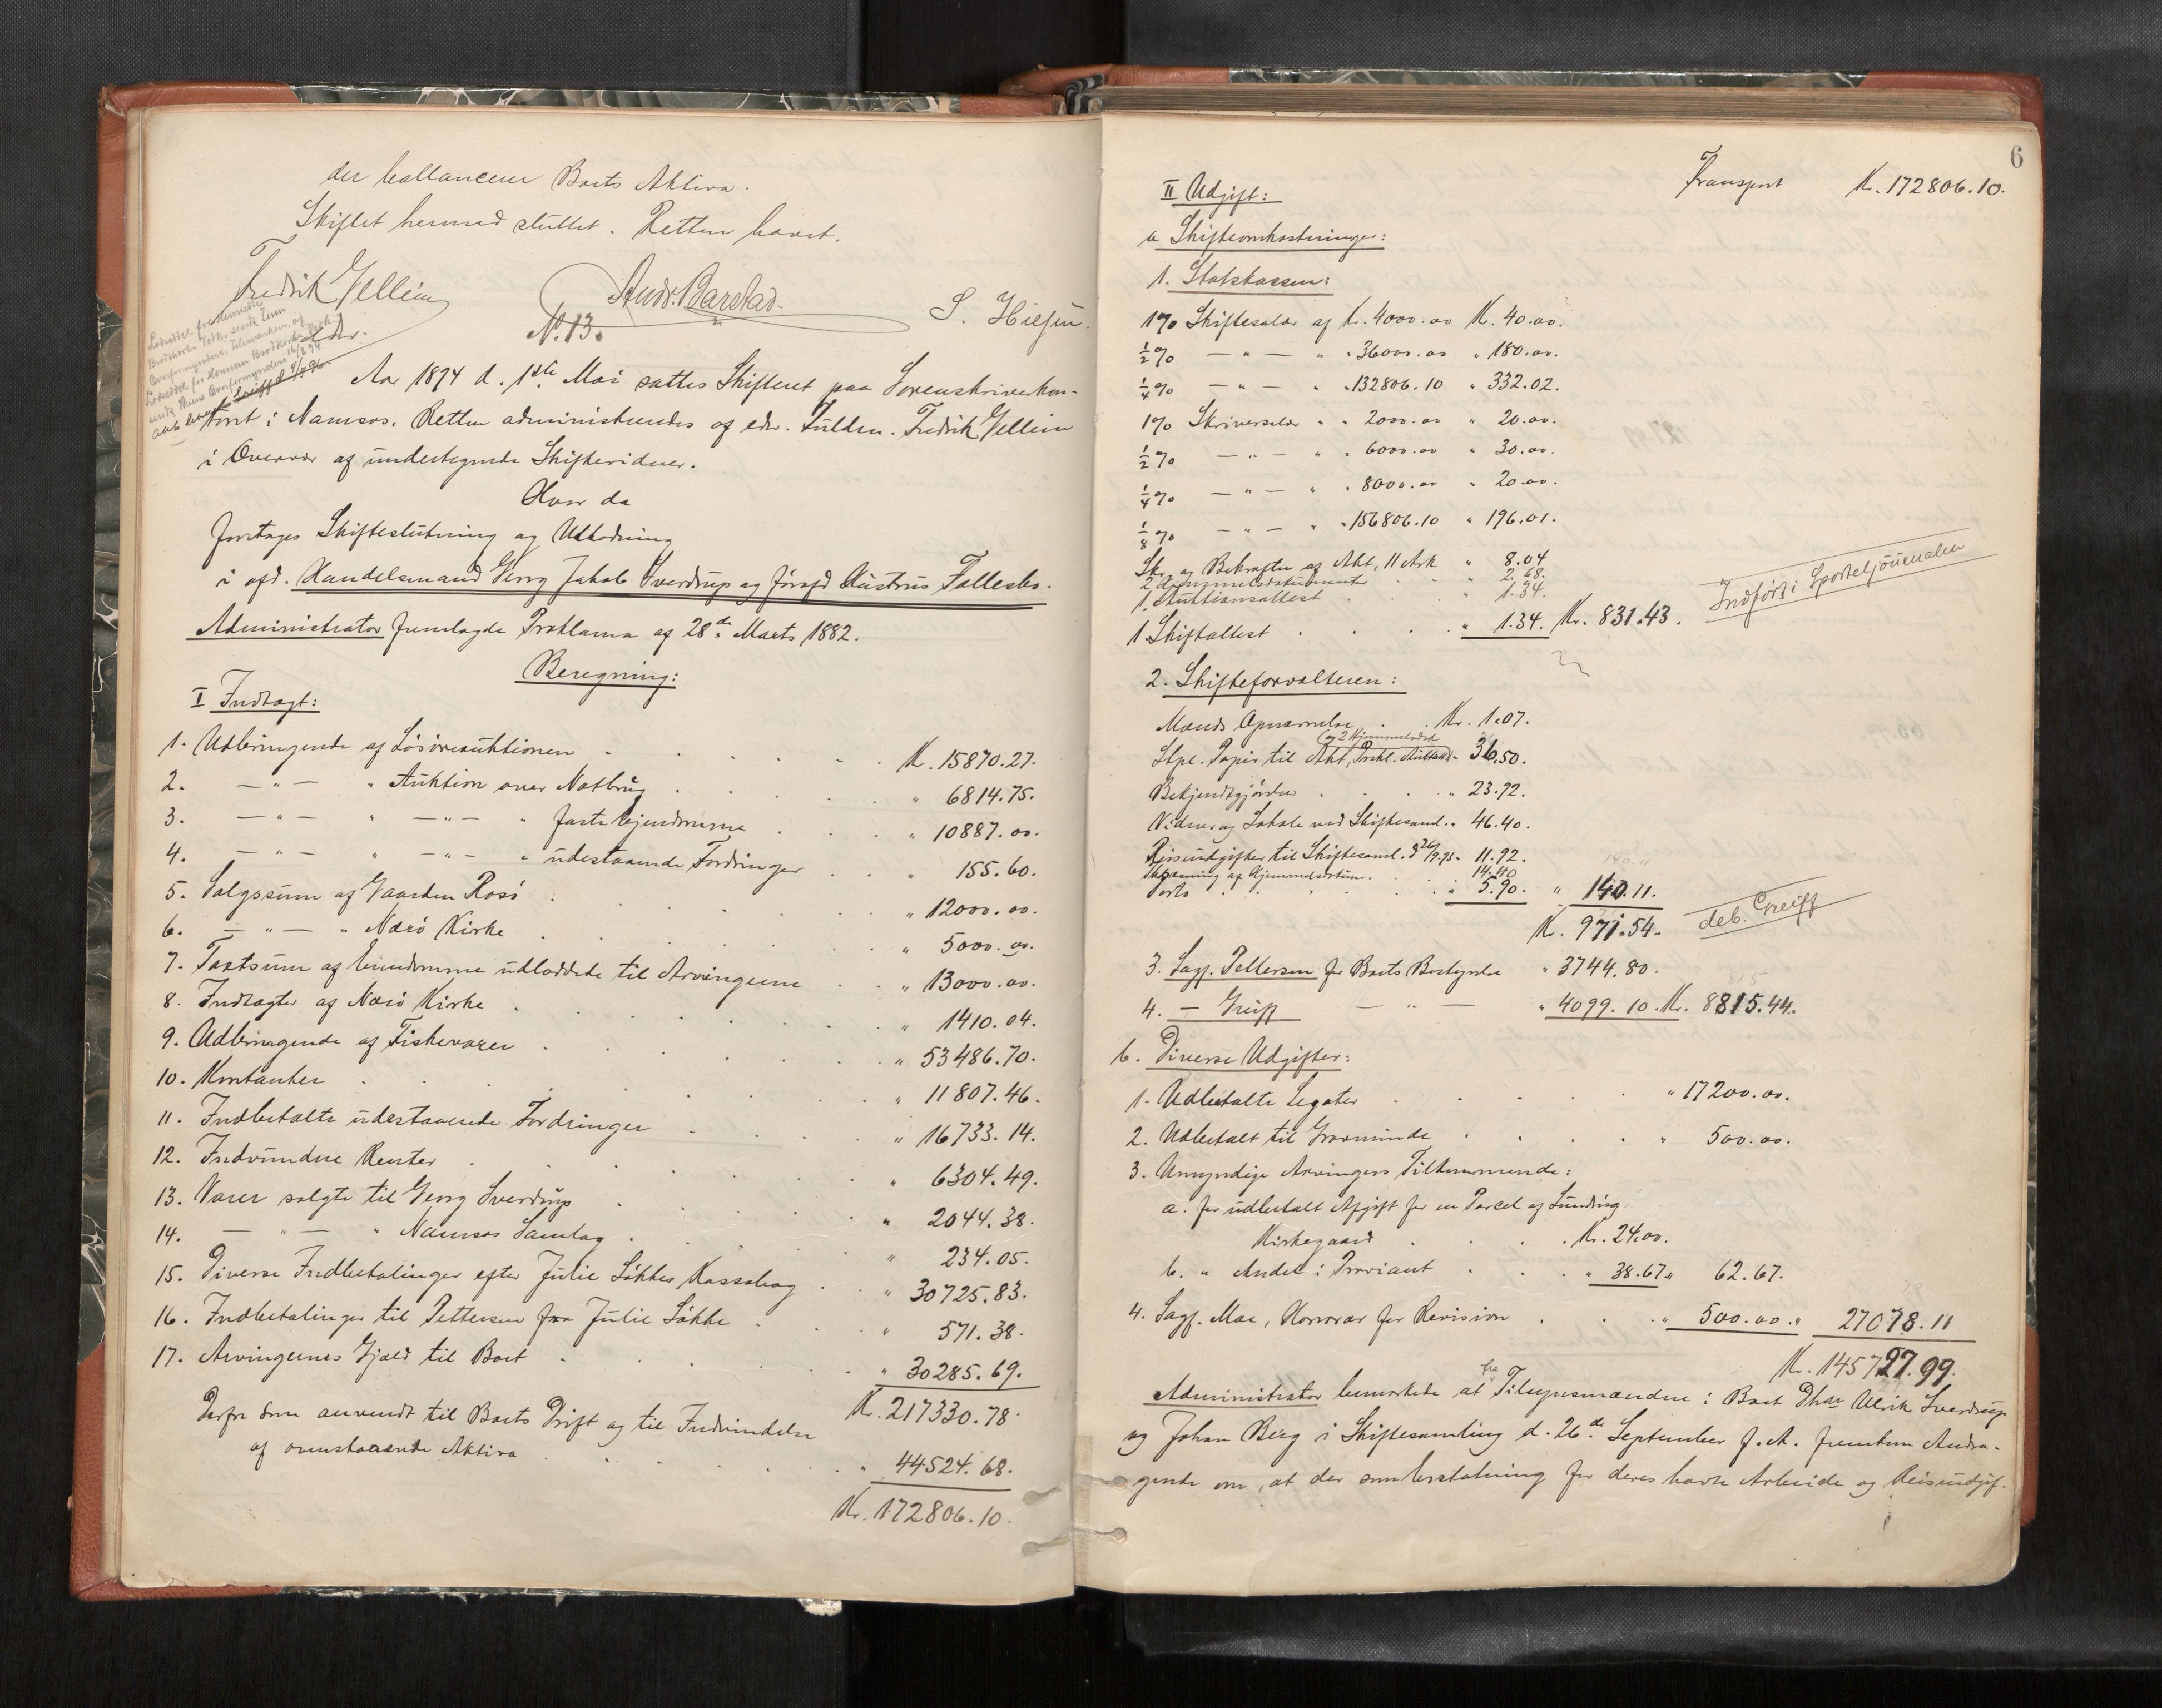 der ballancerer Boets Aktiva.
Skiftet hermed sluttet. Retten hævet.
Fredrik Gellein
edsv.
Andr. Barstad.
S. Hilsen.
No. 13.
Aar 1894 d. 1ste Mai sattes Skifteret paa Sorenskriverkon-
toret i Namsos. Retten administreredes af edsv. Fuldm. Fredrik Gellein
i Overvær af undertegnede Skiftevidner.
Hvor da
foretoges Skifteslutning og Udlodning
i afd. Handelsmand Georg Jakob Sverdrup og forafd Hustrus Fællesbo.
Administrator fremlagde Proklama af 28de Marts 1882.
Beregning:
I Indtægt:
1. Udbringende af Løsøreauktionen . . . Kr. 15870.27.
2. — " — " Auktion over Notbrug . . . " 6814.75.
3. — " — " — " — " faste Ejendomme . . . " 10887.00.
4. — " — " — " — " udestaaende Fordringer . . " 155.60.
5. Salgssum af Gaarden Rosø . . . " 12000.00.
6. — " — " Nærø Kirke . . . " 5000.00.
7. Taxtsum af Eiendomme udloddede til Arvingerne . . " 13000.00.
8. Indtægter af Nærø Kirke . . . " 1410.04.
9. Udbringende af Fiskevarer . . . " 53486.70.
10. Kontanter . . . " 11807.46.
11. Indbetalte udestaaende Fordringer . . . " 16733.14.
12. Indvundne Renter . . . " 6304.49.
13. Varer solgte til Georg Sverdrup . . . " 2044.38.
14. — " — " Namsos Samlag . . . " 234.05.
15. Diverse Indbetalinger efter Julie Løkkes Kassabog . . " 30725.83.
16. Indbetalinger til Pettersen fra Julie Løkke . . . " 571.38.
17. Arvingernes Gjæld til Boet . . . " 30285.69.
Kr. 217330.78.
Derfra som anvendt til Boets Drift og til Indvindelse
af ovenstaaende Aktiva . . . " 44524.68.
Kr. 172806.10.
6
Transport Kr. 172806.10.
II Udgift:
a Skifteomkostninger:
1. Statskassen:
1% Skiftesalær af Kr. 4000.00 Kr. 40.00.
½% — " — " " 36000.00 " 180.00.
¼% — " — " " 132806.10 " 332.02.
1% Skriversalær " " 2000.00 " 20.00.
½% — " — " " 6000.00 " 30.00.
¼% — " — " " 8000.00 " 20.00.
⅛% — " — " " 156806.10 " 196.01.
Skr. og Bekræftn af Akt, 11 Ark " 8.04
2 Hjemmelsdokumenter . . " 2.68.
1. Auktionsattest . . . " 1.34.
1 Skiftattest . . . " 1.34. Kr. 831.43.
Indført i Sporteljournalen
2. Skifteforvalteren:
Mænds Opnævnelse . . Kr. 1.07.
og 2 Hjemmelsdok
Stpl. Papir til Akt, Prokl. " 36.50.
Bekjendtgjørelse . . . " 23.92.
Vidner og Lokale ved Skiftesaml. " 46.40.
Reiseudgifter til Skiftesaml. d 26/9.93 " 11.92.
Thinglæsning af Hjemmelsdokum. . 14.40
Porto . . . " 5.90. " 140.11.
Kr. 971.54.
deb. Greiff
3. Sagf. Pettersen for Boets Bestyrelse " 3744.80.
4. — Greiff — " — " 4099.10. Kr. 8815.44.
b. Diverse Udgifter:
1. Udbetalte Legater . . . " 17200.00.
2. Udbetalt til Gravminde . . . " 500.00.
3. Umyndige Arvingers Tilkommende:
a. for udbetalt Afgift for en Parcel af Lundring
Kirkegaard . . . Kr. 24.00.
b. " Andel i Proviant . . . " 38.67 " 62.67.
4. Sagf. Moe, Honorar for Revision . . . " 500.00. " 27078.11
Kr. 145727.99.
Administrator bemærkede at fra Tilsynsmændene i Boet Dhrr Ulrik Sverdrup
og Johan Berg i Skiftesamling d. 26de September f. A. fremkom Andra-
gende om, at der som Erstatning for deres havte Arbeide og Reiseudgif-